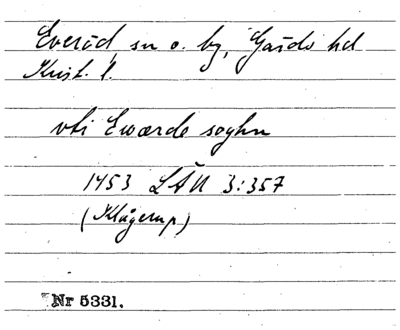 Everöd sn o. by, Gärds hd
Krist. l.
vti Ewærde soghn
1453 LÄU 3:357
(Klågerup)
Nr 5331.